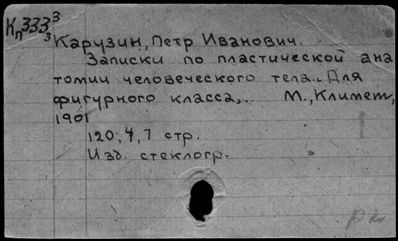 Кп 333 3/3
Карузин, Петр Иванович.
Записки по пластической ана
томии человеческого тела.. Для
фигурного класса,.. М., Климет,
1901
120, 4, 7 стр.
Изд. стеклогр.